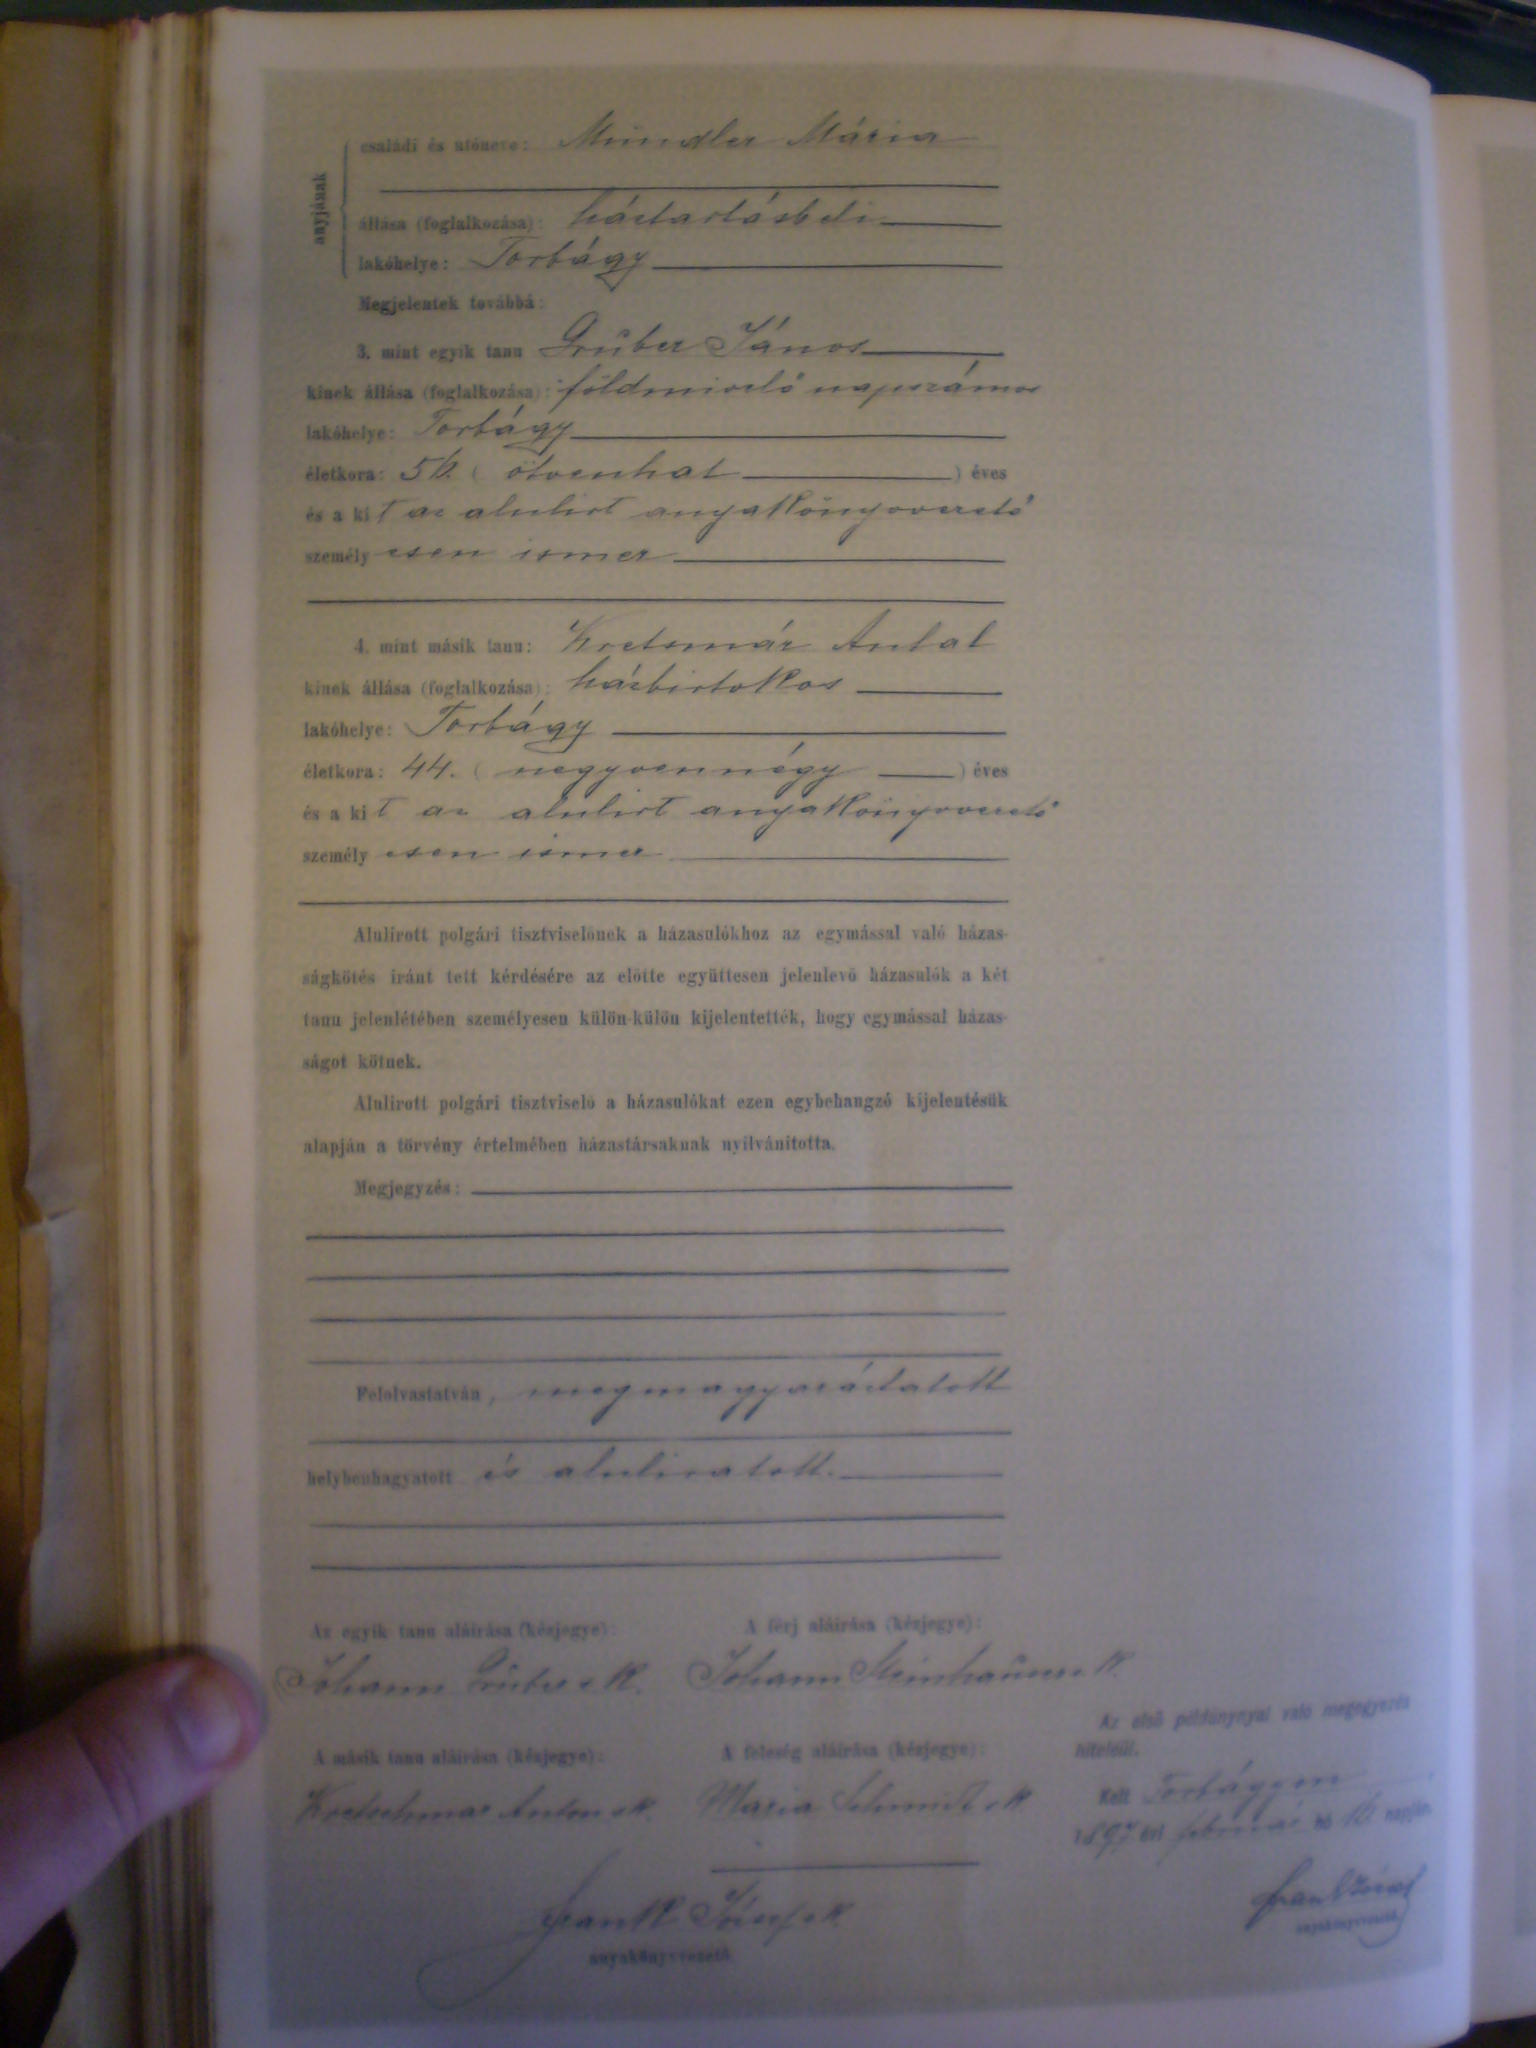 anyjának
családi és utóneve: Mündler Mária
állása (foglalkozása): háztartásbeli
lakóhelye: Torbágy
Megjelentek továbbá:
3. mint egyik tanu Gruber János
kinek állása (foglalkozása): földmivelő napszámos
lakóhelye: Torbágy
életkora: 56. ( ötvenhat ) éves
és a kit az alulirt anyakönyvvezető
személyesen ismer
4. mint másik tanu: Kretsmár Antal
kinek állása (foglalkozása): házbirtokos
lakóhelye: Torbágy
életkora: 44. ( negyvennégy ) éves
és a kit az alulirt anyakönyvvezető
személyesen ismer
Alulirott polgári tisztviselőnek a házasulókhoz az egymással való házas-
ságkötés iránt tett kérdésére az előtte együttesen jelenlevő házasulók a két
tanu jelenlétében személyesen külön-külön kijelentették, hogy egymással házas-
ságot kötnek.
Alulirott polgári tisztviselő a házasulókat ezen egybehangzó kijelentésük
alapján a törvény értelmében házastársaknak nyilvánitotta.
Megjegyzés:
Felolvastatván, megmagyaráztatott
helybenhagyatott és aluliratott.
Az egyik tanu aláirása (kézjegye): A férj aláirása (kézjegye):
Johann Gruber sk. Johann Steinhauser sk.
Az első példánynyal való megegyezés
hiteléül.
A másik tanu aláirása (kézjegye): A feleség aláirása (kézjegye):
Kretschmar Anton sk. Maria Schmidt sk
Kelt Torbágyon
1897 évi február hó 16 napján
Frank József sk
anyakönyvvezető.
Frank József
anyakönyvvezető.